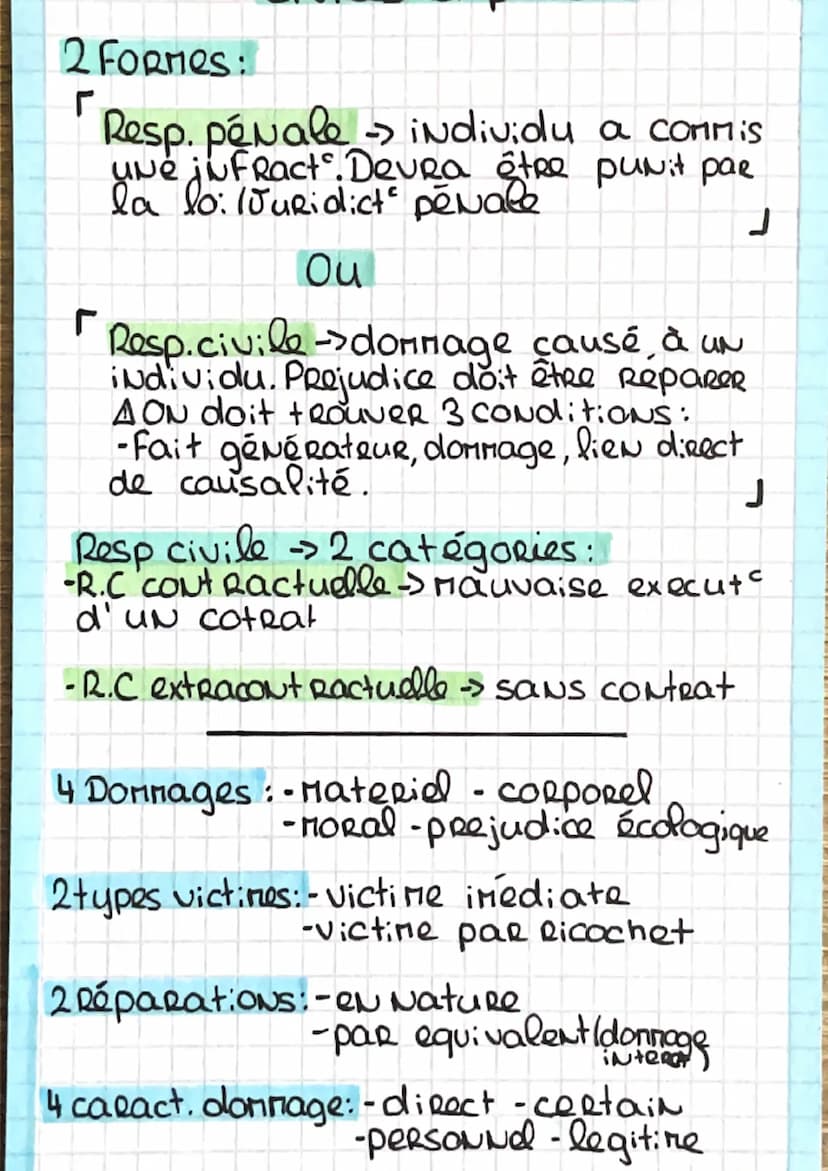 2 Formes :
Resp. pénale -> individu a commis
une infract°. Devra être punit par
la loi/Juridict° pénale
Ou
Resp. civile -> dommage causé à un
individu. Prejudice doit être réparer
Δ ON doit trouver 3 conditions :
- Fait générateur, dommage, lien direct
de causalité.
Resp civile -> 2 catégories :
- R.C contractuelle -> mauvaise execut°
d'un cotrat
- R.C extracontractuelle -> sans contrat
4 Dommages : - materiel - corporel
- moral - prejudice écologique
2 types victimes : - victime imédiate
- victime par ricochet
2 Réparations : - en nature
- par equivalent (dommage
interet)
4 caract. dommage : - direct - certain
- personnel - legitime